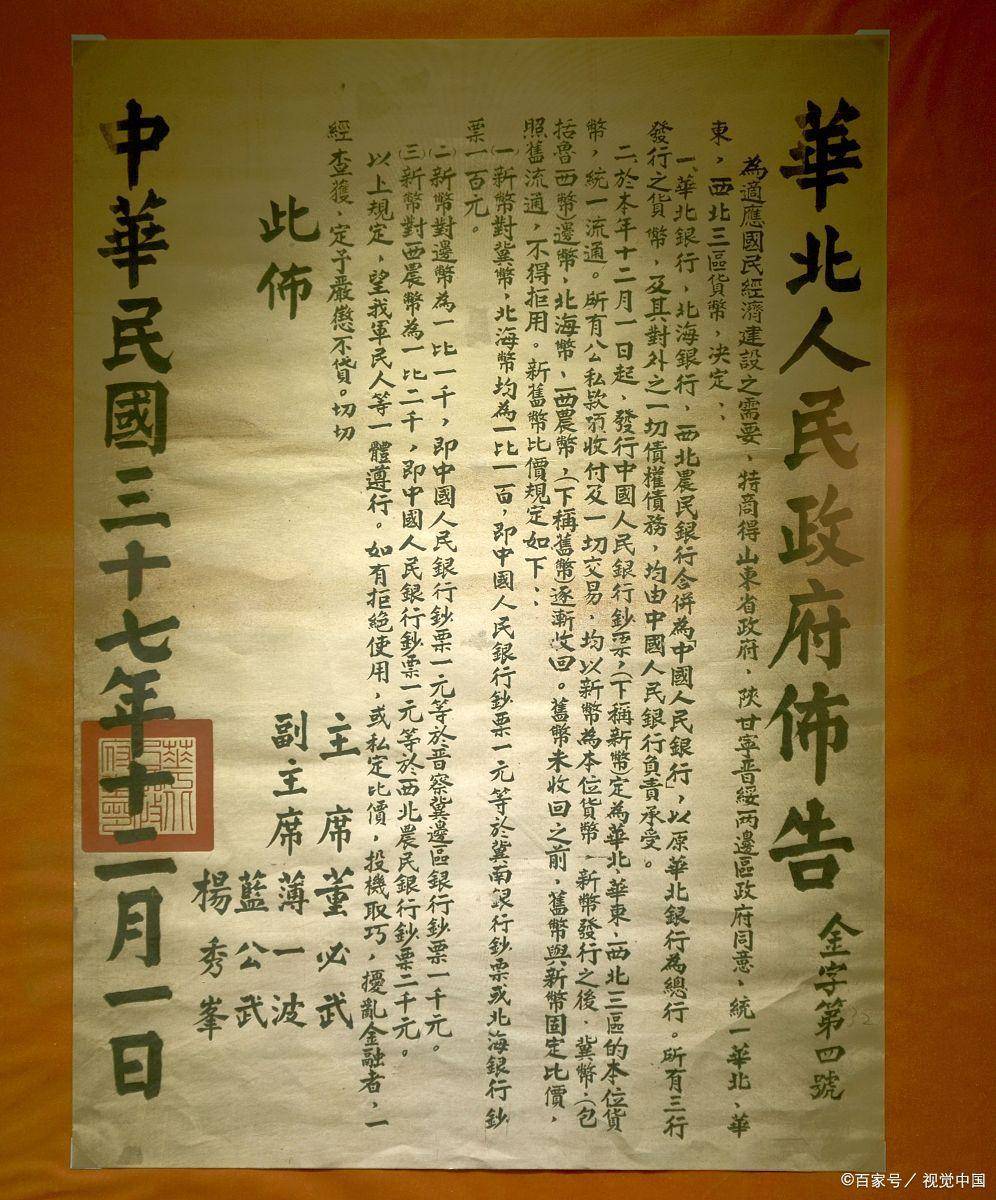 華北人民政府佈告 金字第四號
為適應國民經濟建設之需要，特商得山東省政府，陝甘寧晋綏兩邊區政府同意，統一華北、華
東，西北三區貨幣，决定：
一、華北銀行，北海銀行，西北農民銀行合併為「中國人民銀行」，以原華北銀行為總行。所有三行
發行之貨幣，及其對外之一切債權債務，均由中國人民銀行負責承受。
二、於本年十二月一日起，發行中國人民銀行鈔票，（下稱新幣）定為華北、華東、西北三區的本位貨
幣，統一流通。所有公私款項收付及一切交易，均以新幣為本位貨幣，新幣發行之後，冀幣，（包
括魯西幣）邊幣，北海幣，西農幣，（下稱舊幣）逐漸收回。舊幣未收回之前，舊幣與新幣固定比價，
照舊流通，不得拒用。新舊幣比價規定如下：
（一）新幣對冀幣，北海幣均為一比一百，即中國人民銀行鈔票一元等於冀南銀行鈔票或北海銀行鈔
票一百元。
（二）新幣對邊幣為一比一千，即中國人民銀行鈔票一元等於晋察冀邊區銀行鈔票一千元。
（三）新幣對西農幣為一比二千，即中國人民銀行鈔票一元等於西北農民銀行鈔票二千元。
以上規定，望我軍民人等一體遵行。如有拒絕使用，或私定比價，投機取巧，擾亂金融者，一
經查獲，定予嚴懲不貸。切切
此佈
主席 董必武
副主席 薄一波
藍公武
楊秀峯
中華民國三十七年十二月一日
©百家号／视觉中国